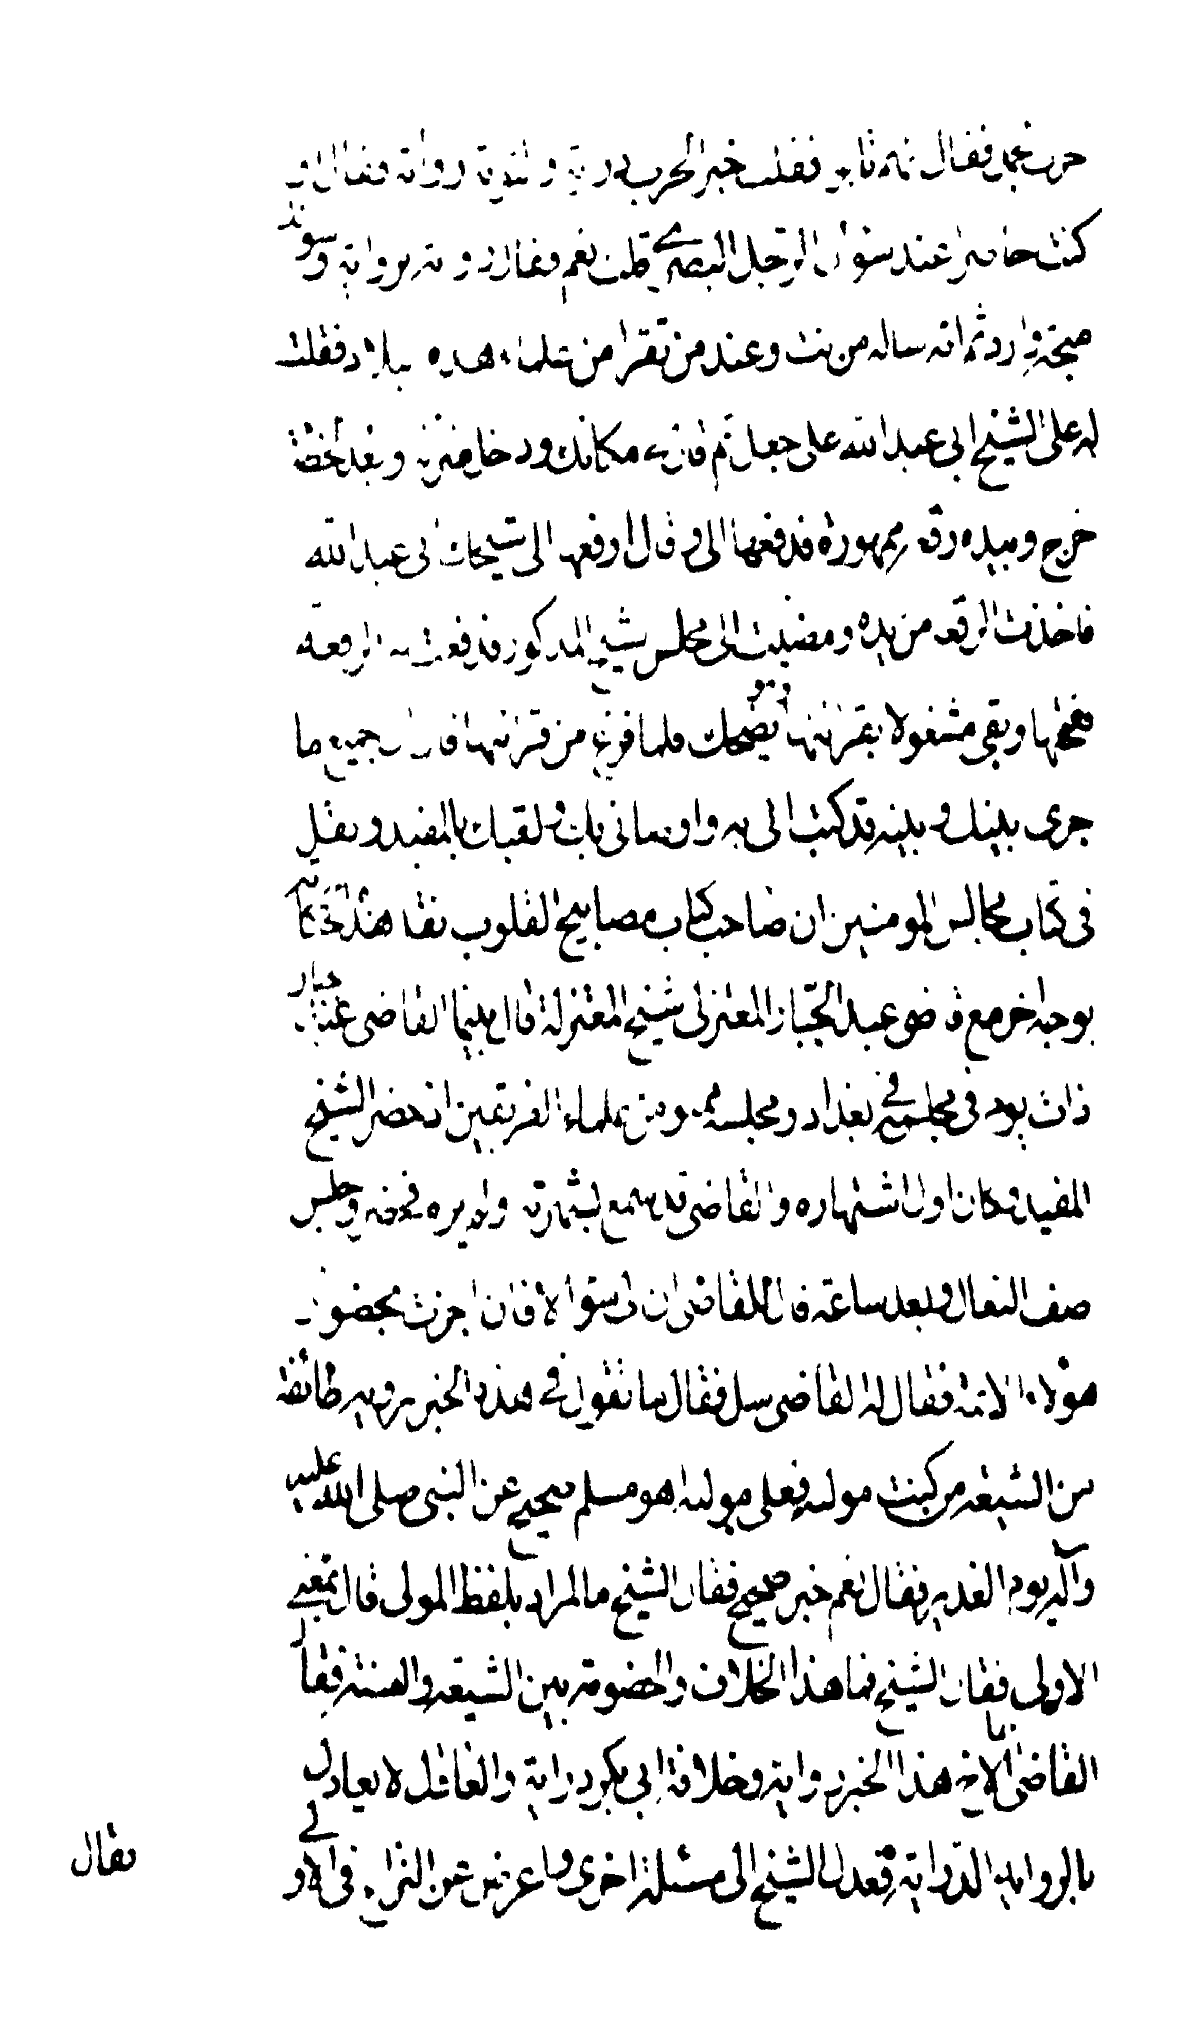 حرب جمل فقال انهم تابو فقلت خبر الحرب دراية و التوبة رواية فقال او
كنت حاضرا عند سؤال الرجل البصري قلت نعم فقال رواية برواية وسو
له على الشيخ ابي عبد الله على جعل ثم قال مكانك ود خل منزله و بعد لحظة
خرج و بيده رقعه ممهورة فدفعها الى و قال ادفعها الى شيخك ابي عبد الله
فاخذت الرقعه من يده و مضيت الى مجلس شيخ المذكور فدفعت له الرقعة
ففتحها و بقى مشغولا بقرائتها و هو يضحك فلما فرغ من قرائتها قال ان جميع ما
جرى بينك و بينه قد كتب الى به و اوصانى بك و لقبك بالمفيد و نقل
فى كتاب مجالس المومنين ان صاحب كتاب مصابيح القلوب نقل هذه الحكاية
بوجه اخر مع قاضى عبد الجبار المعتزلى شيخ المعتزلة قال بينما القاضى عبد الجبار
ذات يوم فى مجلسه فى بغداد و مجلسه مملو من علماء الفريقين اذ حضر الشيخ
المفيد و كان اول اشتهاره و القاضى قد سمع بشهرته و لم يره فحضر و جلس
صف النعال و بعد ساعة قال للقاضى ان لى سؤالا فان اجزت بحضور
هؤلاء الائمة فقال له القاضى سل فقال ما تقول فى هذا الخبر يرويه طائفة
من الشيعه من كنت موليه فعلى موليه اهو مسلم صحيح عن النبى صلى الله عليه
و آله يوم الغدير فقال نعم خبر صحيح فقال الشيخ ما المراد بلفظ المولى قال بمعنى
الاولى فقال الشيخ فما هذا الخلاف و الخصومة بين الشيعه و السنة فقال
القاضى ايها الاخ هذا الخبر رواية و خلافة ابى بكر دراية و العاقل لا يعادل
بالرواية الدراية فعدل الشيخ الى مسئلة اخرى و اعرض عن النزاع فى الاولى
فقال